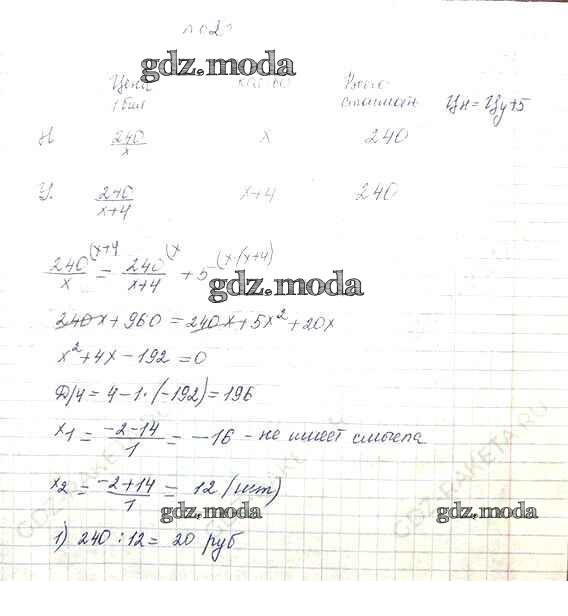 gdz.moda
Цена кол-во Всего
1 бил стоимость Цн = Цу+5
Н 240/x x 240
У. 240/(x+4) x+4 240
240/x (x+4 = 240/(x+4) (x + 5 (x·(x+4)
gdz.moda
240x + 960 = 240x + 5x² + 20x
gdz.moda
x² + 4x − 192 = 0
Д/4 = 4 − 1·(−192) = 196
x₁ = (−2−14)/1 = −16 - не имеет смысла
x₂ = (−2+14)/1 = 12 (шт)
GDZ-RAKETA.RU
gdz.moda gdz.moda
1) 240 : 12 = 20 руб